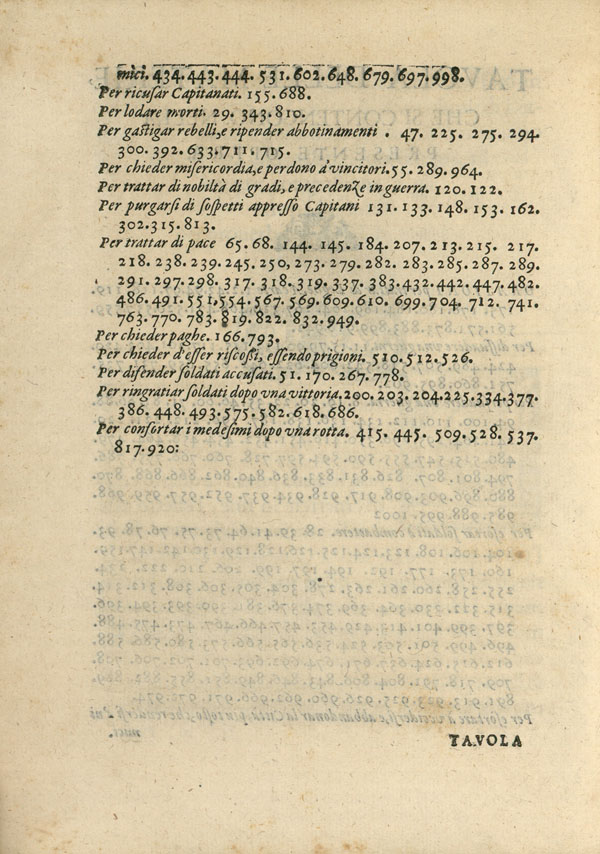 mici. 434.443.444. 531.602.648.679.697.998.
Per ricusar Capitanati. 155.688.
Per lodare morti. 29. 343.810.
Per gastigar rebelli, e ripender abbotinamenti . 47. 225. 275. 294.
300. 392. 633.711. 715.
Per chieder misericordia, e perdono a' vincitori. 55. 289. 964.
Per trattar di nobiltà di gradi, e precedenze in guerra. 120. 122.
Per purgarsi di sospetti appresso Capitani 131. 133. 148. 153. 162.
302.315.813.
Per trattar di pace 65.68. 144. 145. 184. 207. 213. 215. 217.
218. 238. 239. 245. 250, 273. 279. 282. 283. 285. 287. 289.
291. 297. 298. 317. 318. 319. 337. 383. 432. 442. 447. 482.
486. 491. 551. 554. 567. 569. 609. 610. 699. 704. 712. 741.
763. 770. 783. 819. 822. 832. 949.
Per chieder paghe. 166. 793.
Per chieder d'esser riscossi, essendo prigioni. 510. 512. 526.
Per difender soldati accusati. 51. 170. 267. 778.
Per ringratiar soldati dopo vna vittoria. 200. 203. 204. 225. 334. 377.
386. 448. 493. 575. 582. 618. 686.
Per confortar i medesimi dopo vna rotta. 415. 445. 509. 528. 537.
817. 920:
TAVOLA